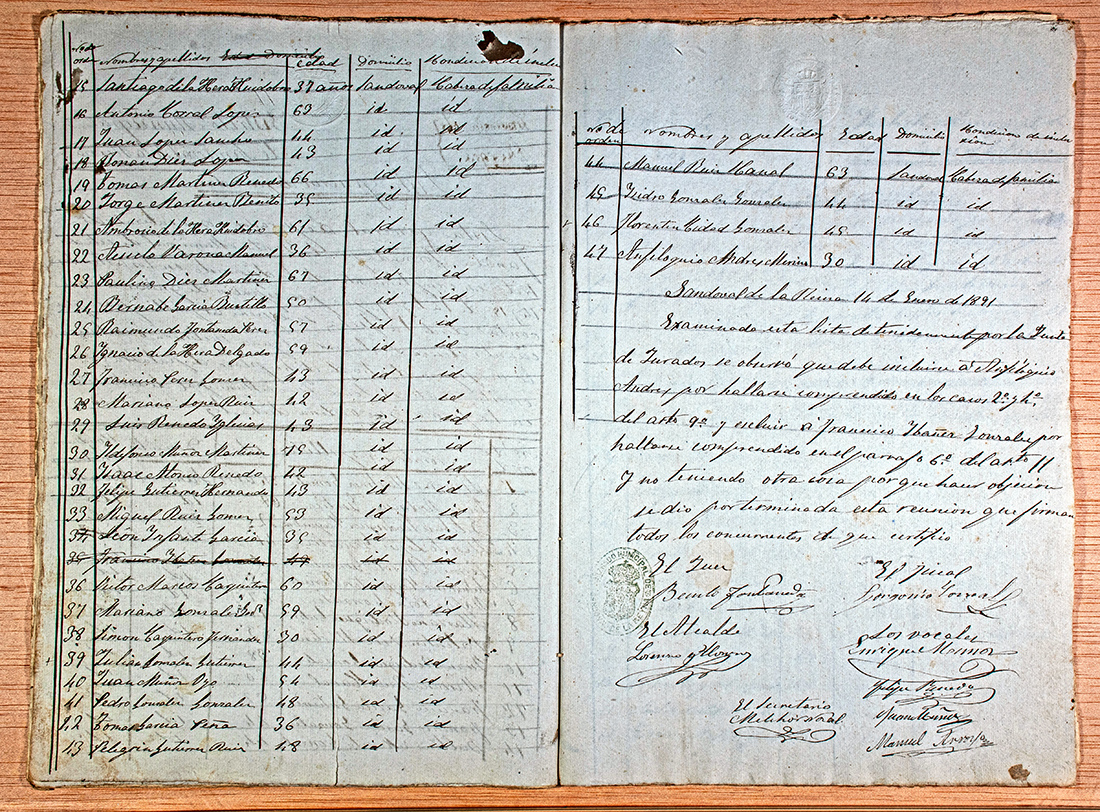 No de orden Nombres y apellidos Edad Domicilio Edad Domicilio Condicion de inclu
15 Santiago de la Hera Huidobro 37 años Sandoval Cabeza de familia
16 Antonio Corral Lopez 63 id id
17 Juan Lopez Sancho 44 id id
18 Roman Diez Lopez 43 id id
19 Tomas Martinez Renedo 66 id id
20 Jorge Martinez Benito 35 id id
21 Ambrosio de la Hera Huidobro 61 id id
22 Varona Manuel 36 id id
23 Paulino Diez Martinez 67 id id
24 Bernabe Garcia Bustillo 50 id id
25 Raimundo Fontaneda Perez 57 id id
26 Ignacio de la Hera Delgado 59 id id
27 Francisco Gomez 43 id id
28 Mariano Lopez Ruiz 42 id id
29 Luis Renedo Yglesias 43 id id
30 Ildefonso Muñoz Martinez 45 id id
31 Isaac Alonso Renedo 42 id id
32 Felipe Gutierrez Hernando 43 id id
33 Miguel Ruiz Gomez 53 id id
34 Leon Infant Garcia 35 id id
35 Francisco Ibañez Gonzalez id id
36 Victor Marcos 60 id id
37 Mariano Gonzalez 59 id id
38 Simon Fernandez 30 id id
39 Julian Gonzalez Gutierrez 44 id id
40 Juan Muñoz 54 id id
41 Pedro Gonzalez Gonzalez 48 id id
42 Tomas Garcia Peña 36 id id
43 Pelegrin Gutierrez Ruiz 48 id id
No de orden Nombres y apellidos Edad Domicilio Condicion de inclu
xion
44 Manuel Ruiz 63 Sandoval Cabeza de familia
45 Isidro Gonzalez Gonzalez 44 id id
46 Florentin Ciudad Gonzalez 45 id id
47 Anfiloquio Andres Merino 30 id id
Sandoval de la Reina 14 de Enero de 1891
Examinada esta lista detenidamente por la Junta
de Jurados se observó que debe incluirse á Anfiloquio
Andres por hallarse comprendido en los casos 2º y 4º
del artº 9º y excluir á Francisco Ibañez Gonzalez por
hallarse comprendido en el parrafo 6º del artº 11
Y no teniendo otra cosa porque hacer objecion
se dio por terminada esta reunion que firman
todos los concurrentes de que certifico
El Juez
Benito Fontaneda
El Fiscal
Gorgonio Corral
El Alcalde
Lorenzo
Los vocales
Enrique
Felipe Renedo
El Secretario
Melchor
Juan Muñoz
Manuel